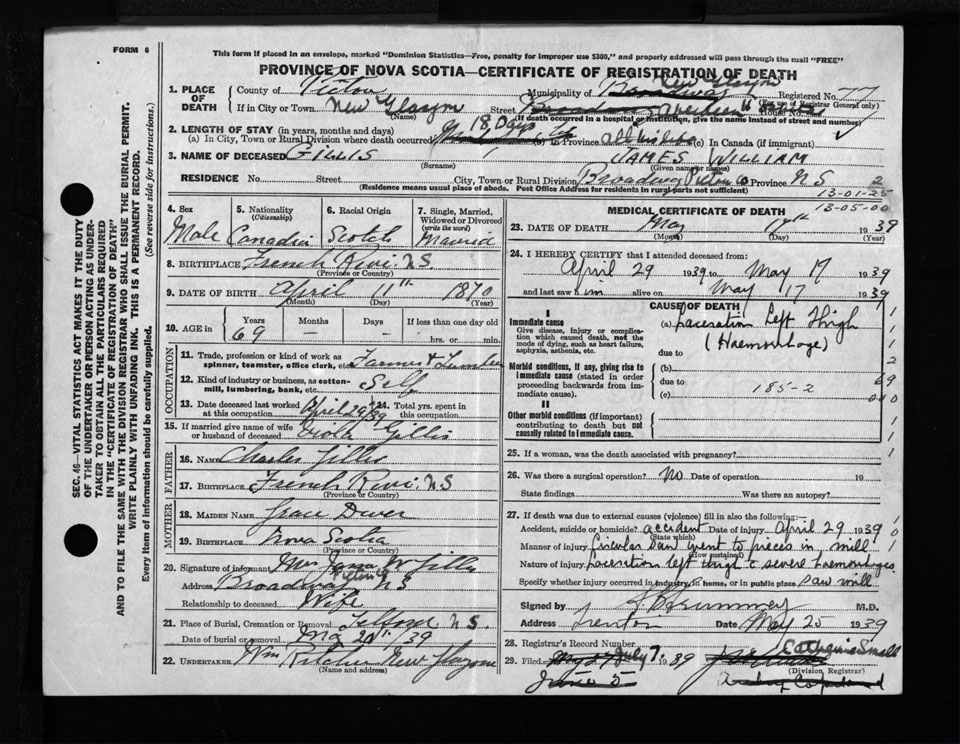 FORM 6
This form if placed in an envelope, marked "Dominion Statistics—Free, penalty for improper use $300," and properly addressed will pass through the mail "FREE"
PROVINCE OF NOVA SCOTIA—CERTIFICATE OF REGISTRATION OF DEATH
SEC. 46—VITAL STATISTICS ACT MAKES IT THE DUTY
OF THE UNDERTAKER OR PERSON ACTING AS UNDER-
TAKER TO OBTAIN ALL THE PARTICULARS REQUIRED
IN THE "CERTIFICATE OF REGISTRATION OF DEATH"
AND TO FILE THE SAME WITH THE DIVISION REGISTRAR WHO SHALL ISSUE THE BURIAL PERMIT.
WRITE PLAINLY WITH UNFADING INK. THIS IS A PERMANENT RECORD.
Every item of information should be carefully supplied. (See reverse side for instructions.)
1. PLACE OF DEATH County of Pictou Municipality of New Glasgow Registered No. 77
(For use of Registrar General only)
If in City or Town New Glasgow Street Aberdeen House No.
(Name) (If death occurred in a hospital or institution, give the name instead of street and number)
2. LENGTH OF STAY (in years, months and days)
(a) In City, Town or Rural Division where death occurred 18 Days (b) In Province all his life (c) In Canada (if immigrant)
3. NAME OF DECEASED GILLIS JAMES WILLIAM
(Surname) (Given name or names)
RESIDENCE No. Street City, Town or Rural Division Broadway Pictou Co Province NS
(Residence means usual place of abode. Post Office Address for residents in rural parts not sufficient)
2
13-01-25
13-05-00
4. Sex Male
5. Nationality (Citizenship) Canadian
6. Racial Origin Scotch
7. Single, Married, Widowed or Divorced (write the word) Married
8. BIRTHPLACE French River N.S.
(Province or Country)
9. DATE OF BIRTH April 11th 1870
(Month) (Day) (Year)
10. AGE in Years 69 Months – Days – If less than one day old
hrs. or min.
OCCUPATION
11. Trade, profession or kind of work as spinner, teamster, office clerk, etc. Farmer & Lumber
12. Kind of industry or business, as cotton-mill, lumbering, bank, etc. Self
13. Date deceased last worked at this occupation April 29/39 14. Total yrs. spent in this occupation
15. If married give name of wife or husband of deceased Viola Gillis
FATHER
16. NAME Charles Gillis
17. BIRTHPLACE French River N.S
(Province or Country)
MOTHER
18. MAIDEN NAME Grace
19. BIRTHPLACE Nova Scotia
(Province or Country)
20. Signature of informant Mrs James W Gillis
Address Broadway Pictou Co N S
Relationship to deceased Wife
21. Place of Burial, Cremation or Removal Telford N.S.
Date of burial or removal May 20th/39
22. UNDERTAKER Wm Ritchie New Glasgow
(Name and address)
MEDICAL CERTIFICATE OF DEATH
23. DATE OF DEATH May 17th 1939
(Month) (Day) (Year)
24. I HEREBY CERTIFY that I attended deceased from:
April 29 1939 to May 17 1939
and last saw him alive on May 17 1939
CAUSE OF DEATH
I
Immediate cause
Give disease, injury or complication which caused death, not the mode of dying, such as heart failure, asphyxia, asthenia, etc.
(a) Laceration Left Thigh
(Haemorrhage)
due to
Morbid conditions, if any, giving rise to immediate cause (stated in order proceeding backwards from immediate cause)
(b)
due to
185-2
(c)
II
Other morbid conditions (if important) contributing to death but not causally related to immediate cause.
1
1
1
2
69
000
1
1
1
25. If a woman, was the death associated with pregnancy?
26. Was there a surgical operation? No Date of operation 19
State findings Was there an autopsy?
27. If death was due to external causes (violence) fill in also the following:—
Accident, suicide or homicide? accident Date of injury April 29 1939
(State which)
Manner of injury Circular saw went to pieces in mill
(How sustained)
Nature of injury Laceration left thigh c severe haemorrhages
Specify whether injury occurred in industry, in home, or in public place saw mill
Signed by M.D.
Address Trenton Date May 25 1939
28. Registrar's Record Number
29. Filed July 7 1939 Catherine Small
(Division Registrar)
June 5